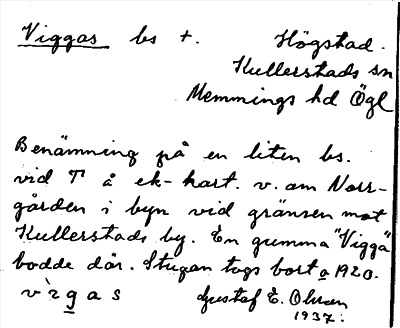 Viggas bs +. Högstad.
Kullerstads sn
Memmings hd Ögl
Benämning på en liten bs.
vid T å ek-kart. v. om Norr-
gården i byn vid gränsen mot
Kullerstads by. En gumma "Vigga"
bodde där. Stugan togs bort o 1920.
vìgas Gustaf E. Olson
1937.